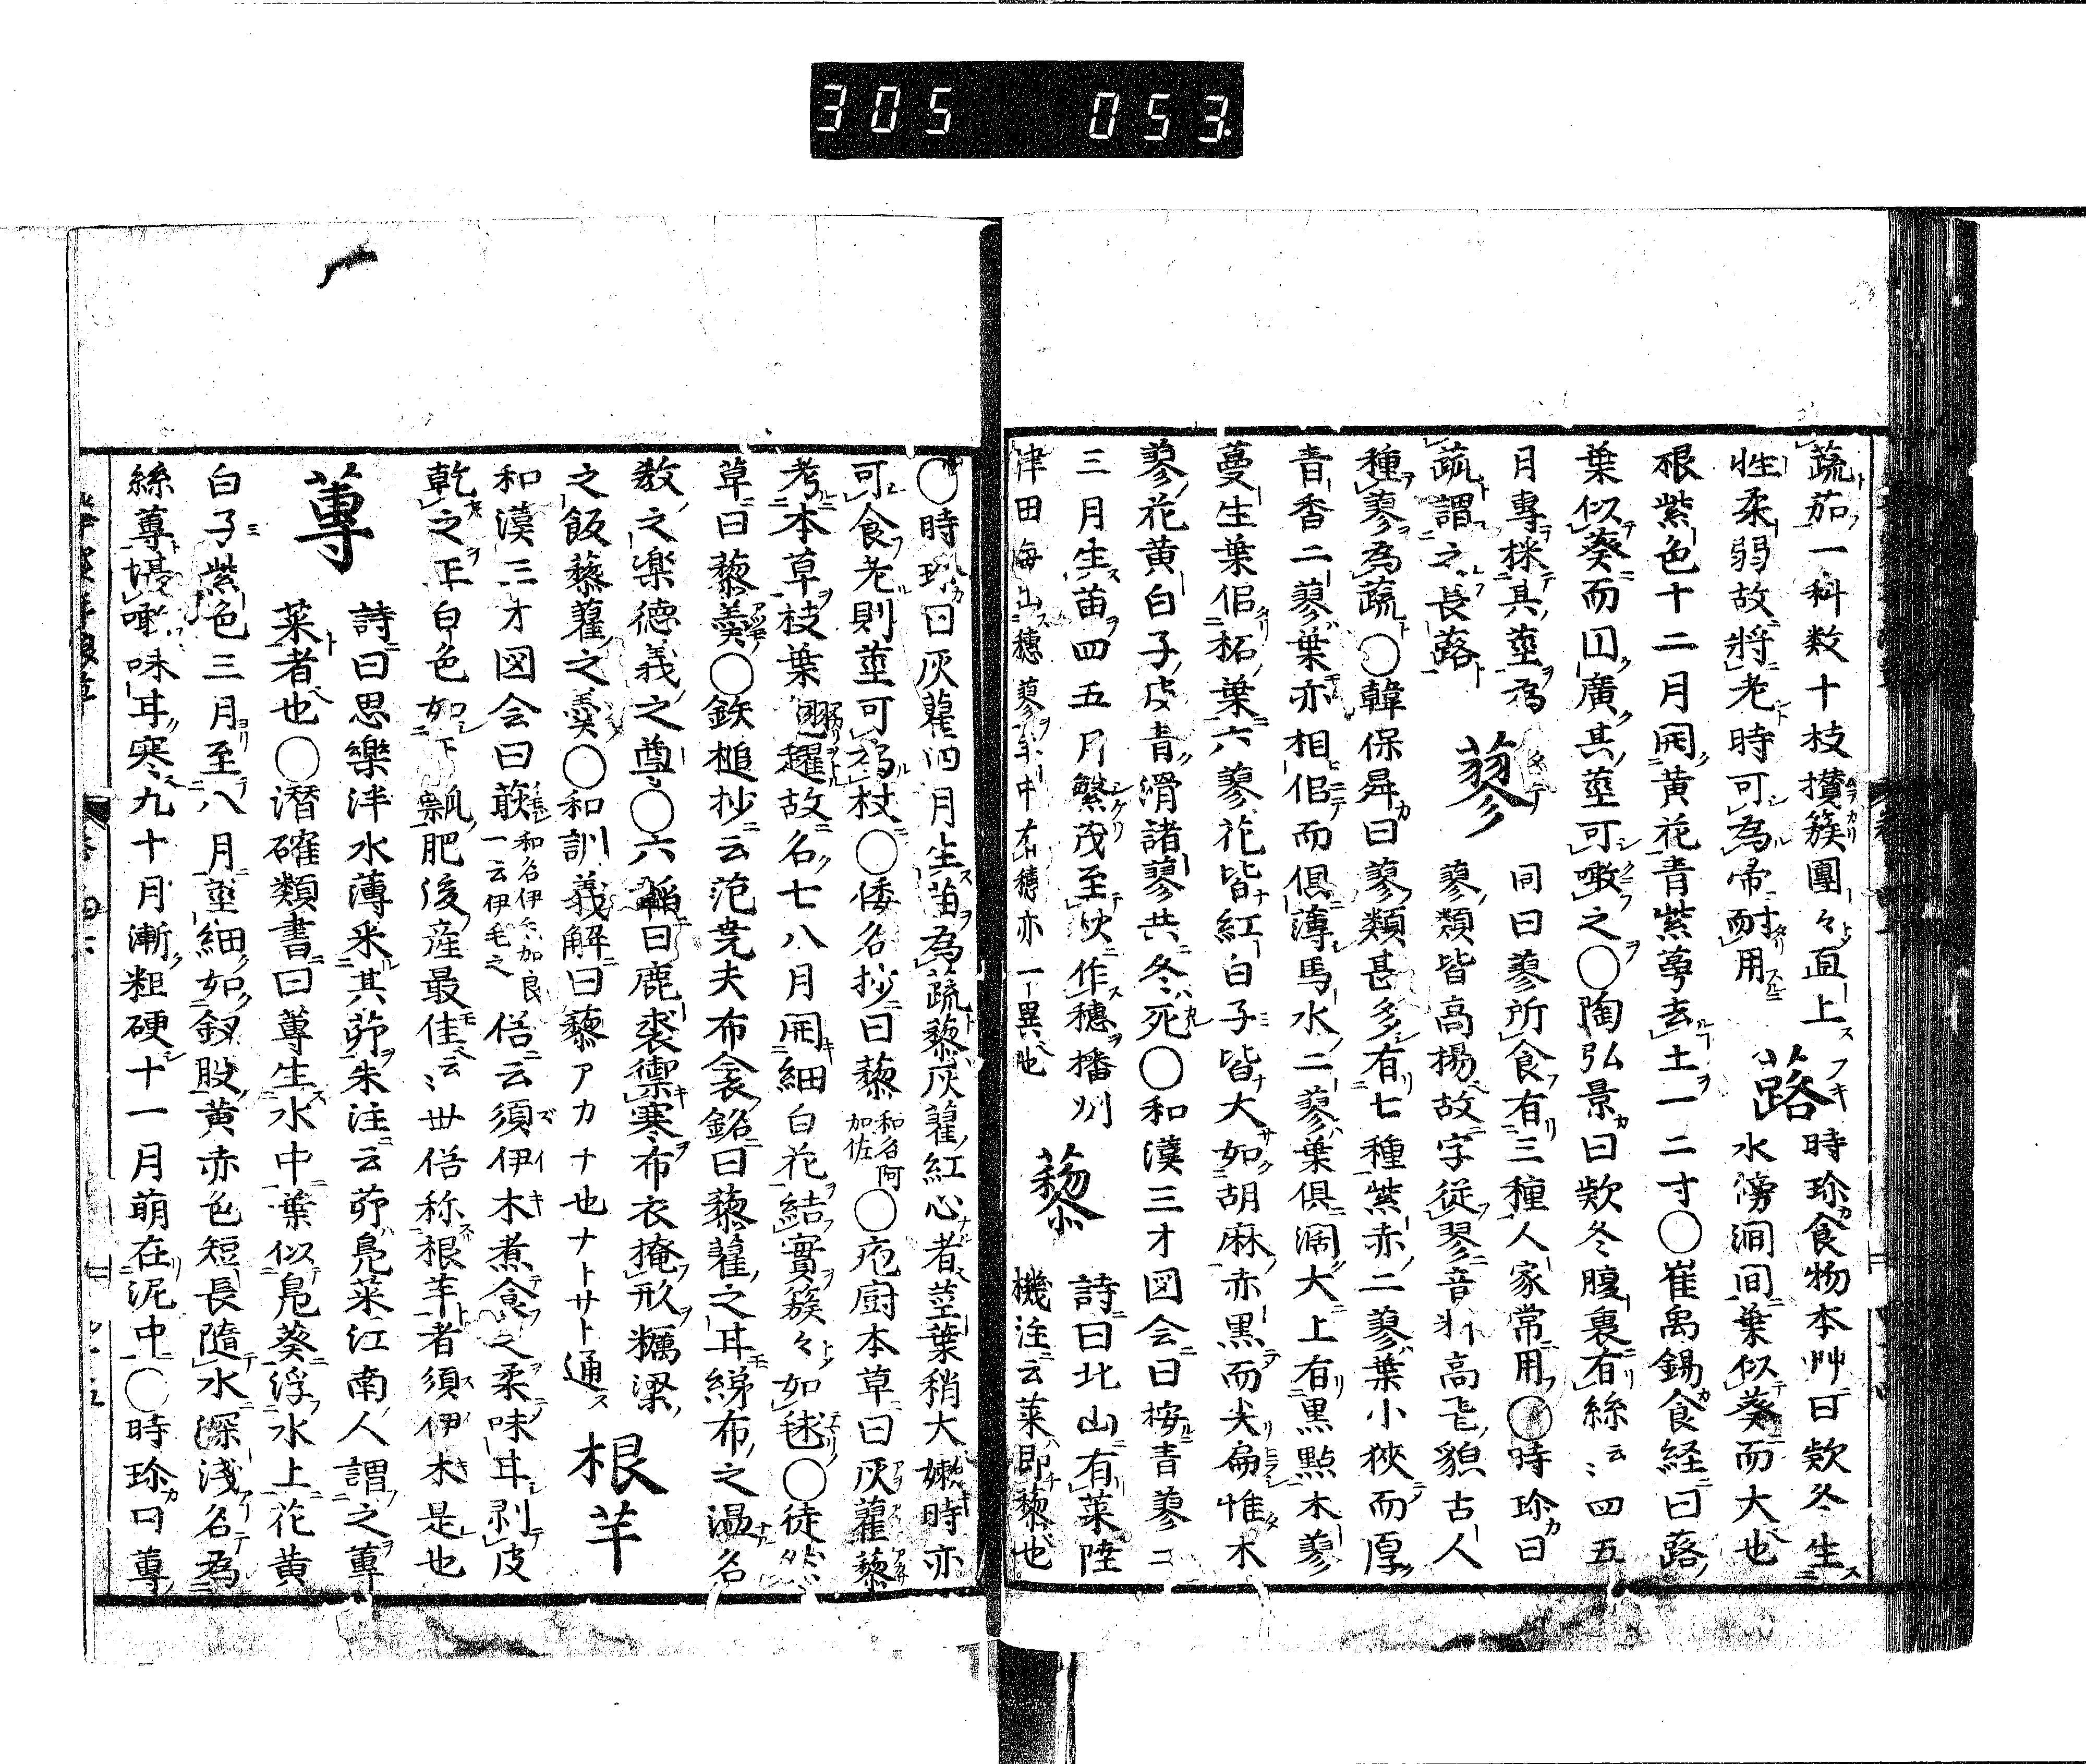 305 053
蔬茹一科数十枝攅簇團々直上
蕗
時珍食物本艸曰欵冬生
性柔弱故將老時可為帚耐用
水滂澗间葉似葵而大也
根紫色十二月開黄花青紫萼去土一二寸〇崔禹錫食経曰蕗
葉似葵而円廣其莖可噉之〇陶弘景曰欵冬腹裏有絲云〻四五
月專採其莖為
蔬謂之長蕗
蓼
同曰蓼所食有三種人家常用〇時珍曰
蓼類皆高揚故字従翏音料高飛貌古人
種蓼為蔬〇韓保昇曰蓼類甚多有七種紫赤二蓼葉小狹而厚
青香二蓼葉亦相似而俱薄馬水二蓼葉俱濶大上有黒點木蓼
蔓生葉似柘葉六蓼花皆紅白子皆大如胡麻赤黒而尖扁惟木
蓼花黄白子皮青滑諸蓼共冬死〇和漢三才図会曰按青蓼二
三月生苗四五月繁茂至秋作穗播州
津田海山穗蓼
穗亦一異也
藜
詩曰北山有萊陸
機注云萊即藜也
〇時珍曰灰藋四月生苗為蔬藜灰藋紅心者莖葉稍大嫩時亦
可食老則莖可為杖〇倭名抄曰藜
和名阿
加佐
〇庖厨本草曰灰藋藜
考本草枝葉翹趯故名七八月開細白花結實簇々如毬〇徒然
草曰藜羹〇鉄槌抄云范尭夫布衾銘曰藜藋之耳綈布之温名
教之楽德義之尊〇六韜曰鹿裘禦寒布衣掩形糲粱
之飯藜藿之羹〇和訓義解曰藜アカナ也ナトサト通
根芋
和漢三才図会曰
和名伊
加良
一云伊毛之
俗云須伊木煮食之柔味耳剥皮
乾之正白色如干瓢肥後産最佳云〻世俗称根芋者須伊木是也
蓴
詩曰思樂泮水薄采其茆朱注云茆鳧菜江南人謂之蓴
菜者也〇潜確類書曰蓴生水中葉似鳧葵浮水上花黄
白子紫色三月至八月莖細如釵股黄赤色短長隨水深浅名為
絲蓴堪噉味耳寒九十月漸粗硬十一月萌在泥中〇時珍曰蓴